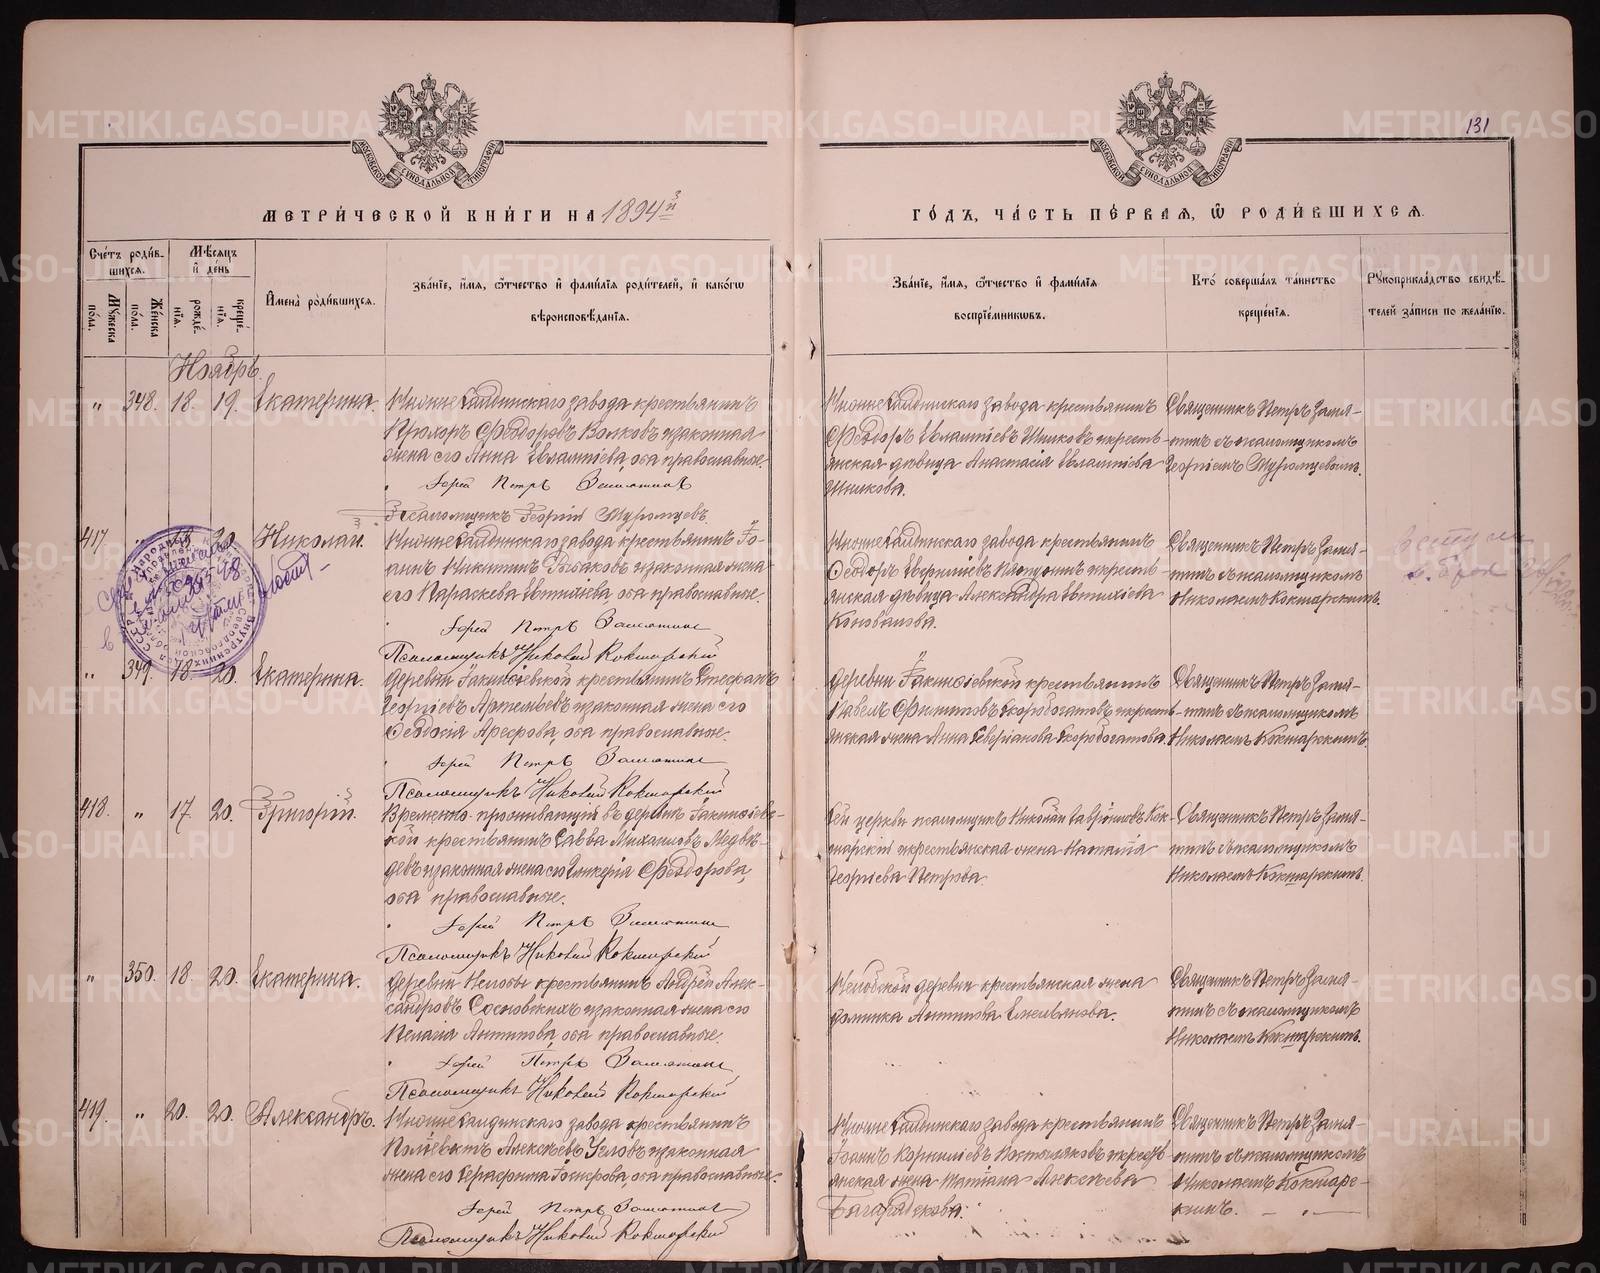 131
МОСКОВСКОЙ СѴНОДАЛЬНОЙ ТИПОГРАФІИ
МОСКОВСКОЙ СѴНОДАЛЬНОЙ ТИПОГРАФІИ
МЕТРИ́ЧЕСКОЙ КНИ́ГИ НА 1894й
ГО́ДЪ, ЧА́СТЬ ПЕ́РВАЯ, Ѿ РОДИ́ВШИХСѦ.
Сче́тъ роди́вшихсѧ.
Мѣ́сѧцъ и҆ де́нь
Мꙋ́жеска по́ла.
Же́нска по́ла.
рожде́нїѧ.
креще́нїѧ.
И҆мена̀ роди́вшихсѧ.
Зва́нїе, и҆́мѧ, ѻ҆́тчество и҆ фамі́лїѧ роди́телей, и҆ како́гѡ
вѣроисповѣ́данїѧ.
Зва́нїе, и҆́мѧ, ѻ҆́тчество и҆ фамі́лїѧ
воспрїе́мникѡвъ.
Кто̀ соверша́лъ та́инство
креще́нїѧ.
Рꙋкоприкла́дство свидѣ́-
телей за́писи по жела́нїю.
Ноябрь.
„ 348. 18. 19. Екатерина.
Нижнесалдинскаго завода крестьянинъ
Прохоръ Ѳеодоровъ Волковъ и законная
жена его Анна Евлампіева, оба православные.
Іерей Петръ Замятинъ
Псаломщикъ Георгій Муромцевъ.
Нижнесалдинскаго завода крестьянинъ
Ѳеодоръ Евлампіевъ Шишковъ и кресть-
янская дѣвица Анастасія Евлампіева
Шишкова.
Священникъ Петръ Замя-
тинъ съ псаломщикомъ
Георгіемъ Муромцевымъ.
417 „ 20. Николай.
Нижнесалдинскаго завода крестьянинъ Іо-
аннъ Никитинъ Рыбаковъ и законная жена
его Параскева Евтихіева, оба православные.
Іерей Петръ Замятинъ
Псаломщикъ Николай Кокшарскій
Нижнесалдинскаго завода крестьянинъ
янская дѣвица Александра Евтихіева
Коновалова.
Священникъ Петръ Замя-
тинъ съ псаломщикомъ
Николаемъ Кокшарскимъ.
„ 349. 18. 20. Екатерина.
Деревни крестьянинъ Стефанъ
Георгіевъ Артемьевъ и законная жена его
Ѳеодосія оба православные.
Іерей Петръ Замятинъ
Псаломщикъ Николай Кокшарскій
Деревни крестьянинъ
Павелъ Филипповъ Скоробогатовъ и кресть-
янская жена Анна Скоробогатова.
Священникъ Петръ Замя-
тинъ съ псаломщикомъ
Николаемъ Кокшарскимъ.
418. „ 17. 20. Григорій.
Временно-проживающій въ деревнѣ
крестьянинъ Савва Михаиловъ Медвѣ-
девъ и законная жена его Гликерія Ѳеодорова,
оба православные.
Іерей Петръ Замятинъ
Псаломщикъ Николай Кокшарскій
Сей церкви псаломщикъ Николай Гавріиловъ Кок-
шарскій и крестьянская жена Наталія
Георгіева Петрова.
Священникъ Петръ Замя-
тинъ съ псаломщикомъ
Николаемъ Кокшарскимъ.
„ 350. 18. 20. Екатерина.
Деревни Нелобы крестьянинъ Андрей Алек-
сандровъ Сосновскихъ и законная жена его
Пелагія Антипова, оба православные.
Іерей Петръ Замятинъ
Псаломщикъ Николай Кокшарскій
Нелобской деревни крестьянская жена
Домника Антипова Емельянова.
Священникъ Петръ Замя-
тинъ съ псаломщикомъ
Николаемъ Кокшарскимъ.
419. „ 20. 20. Александръ.
Нижнесалдинскаго завода крестьянинъ
Поліевктъ Алексѣевъ и законная
жена его Серафима Іосифова, оба православные.
Іерей Петръ Замятинъ
Псаломщикъ Николай Кокшарскій
Нижнесалдинскаго завода крестьянинъ
Іоаннъ Корниліевъ Постыляковъ и кресть-
янская жена Алексѣева
Священникъ Петръ Замя-
тинъ съ псаломщикомъ
Николаемъ Кокшарс-
кимъ.
METRIKI.GASO-URAL.RU